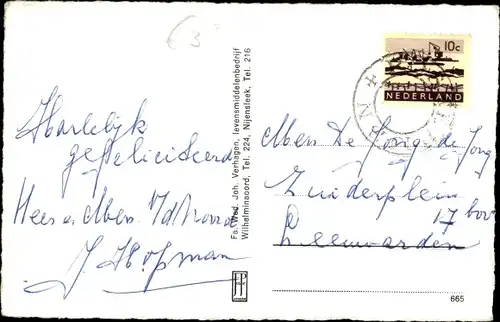 € 3
Hartelijk
gefeliciteerd
Heer & Mevr.
J. Hofman
Fa. Wed. Joh. Verhagen, levensmiddelenbedrijf
Wilhelminaoord, Tel. 224, Nijensleek, Tel. 216
10c
NEDERLAND
Mevr. De Jong-de Jong
Zuiderplein
17 bov
Leeuwarden
665